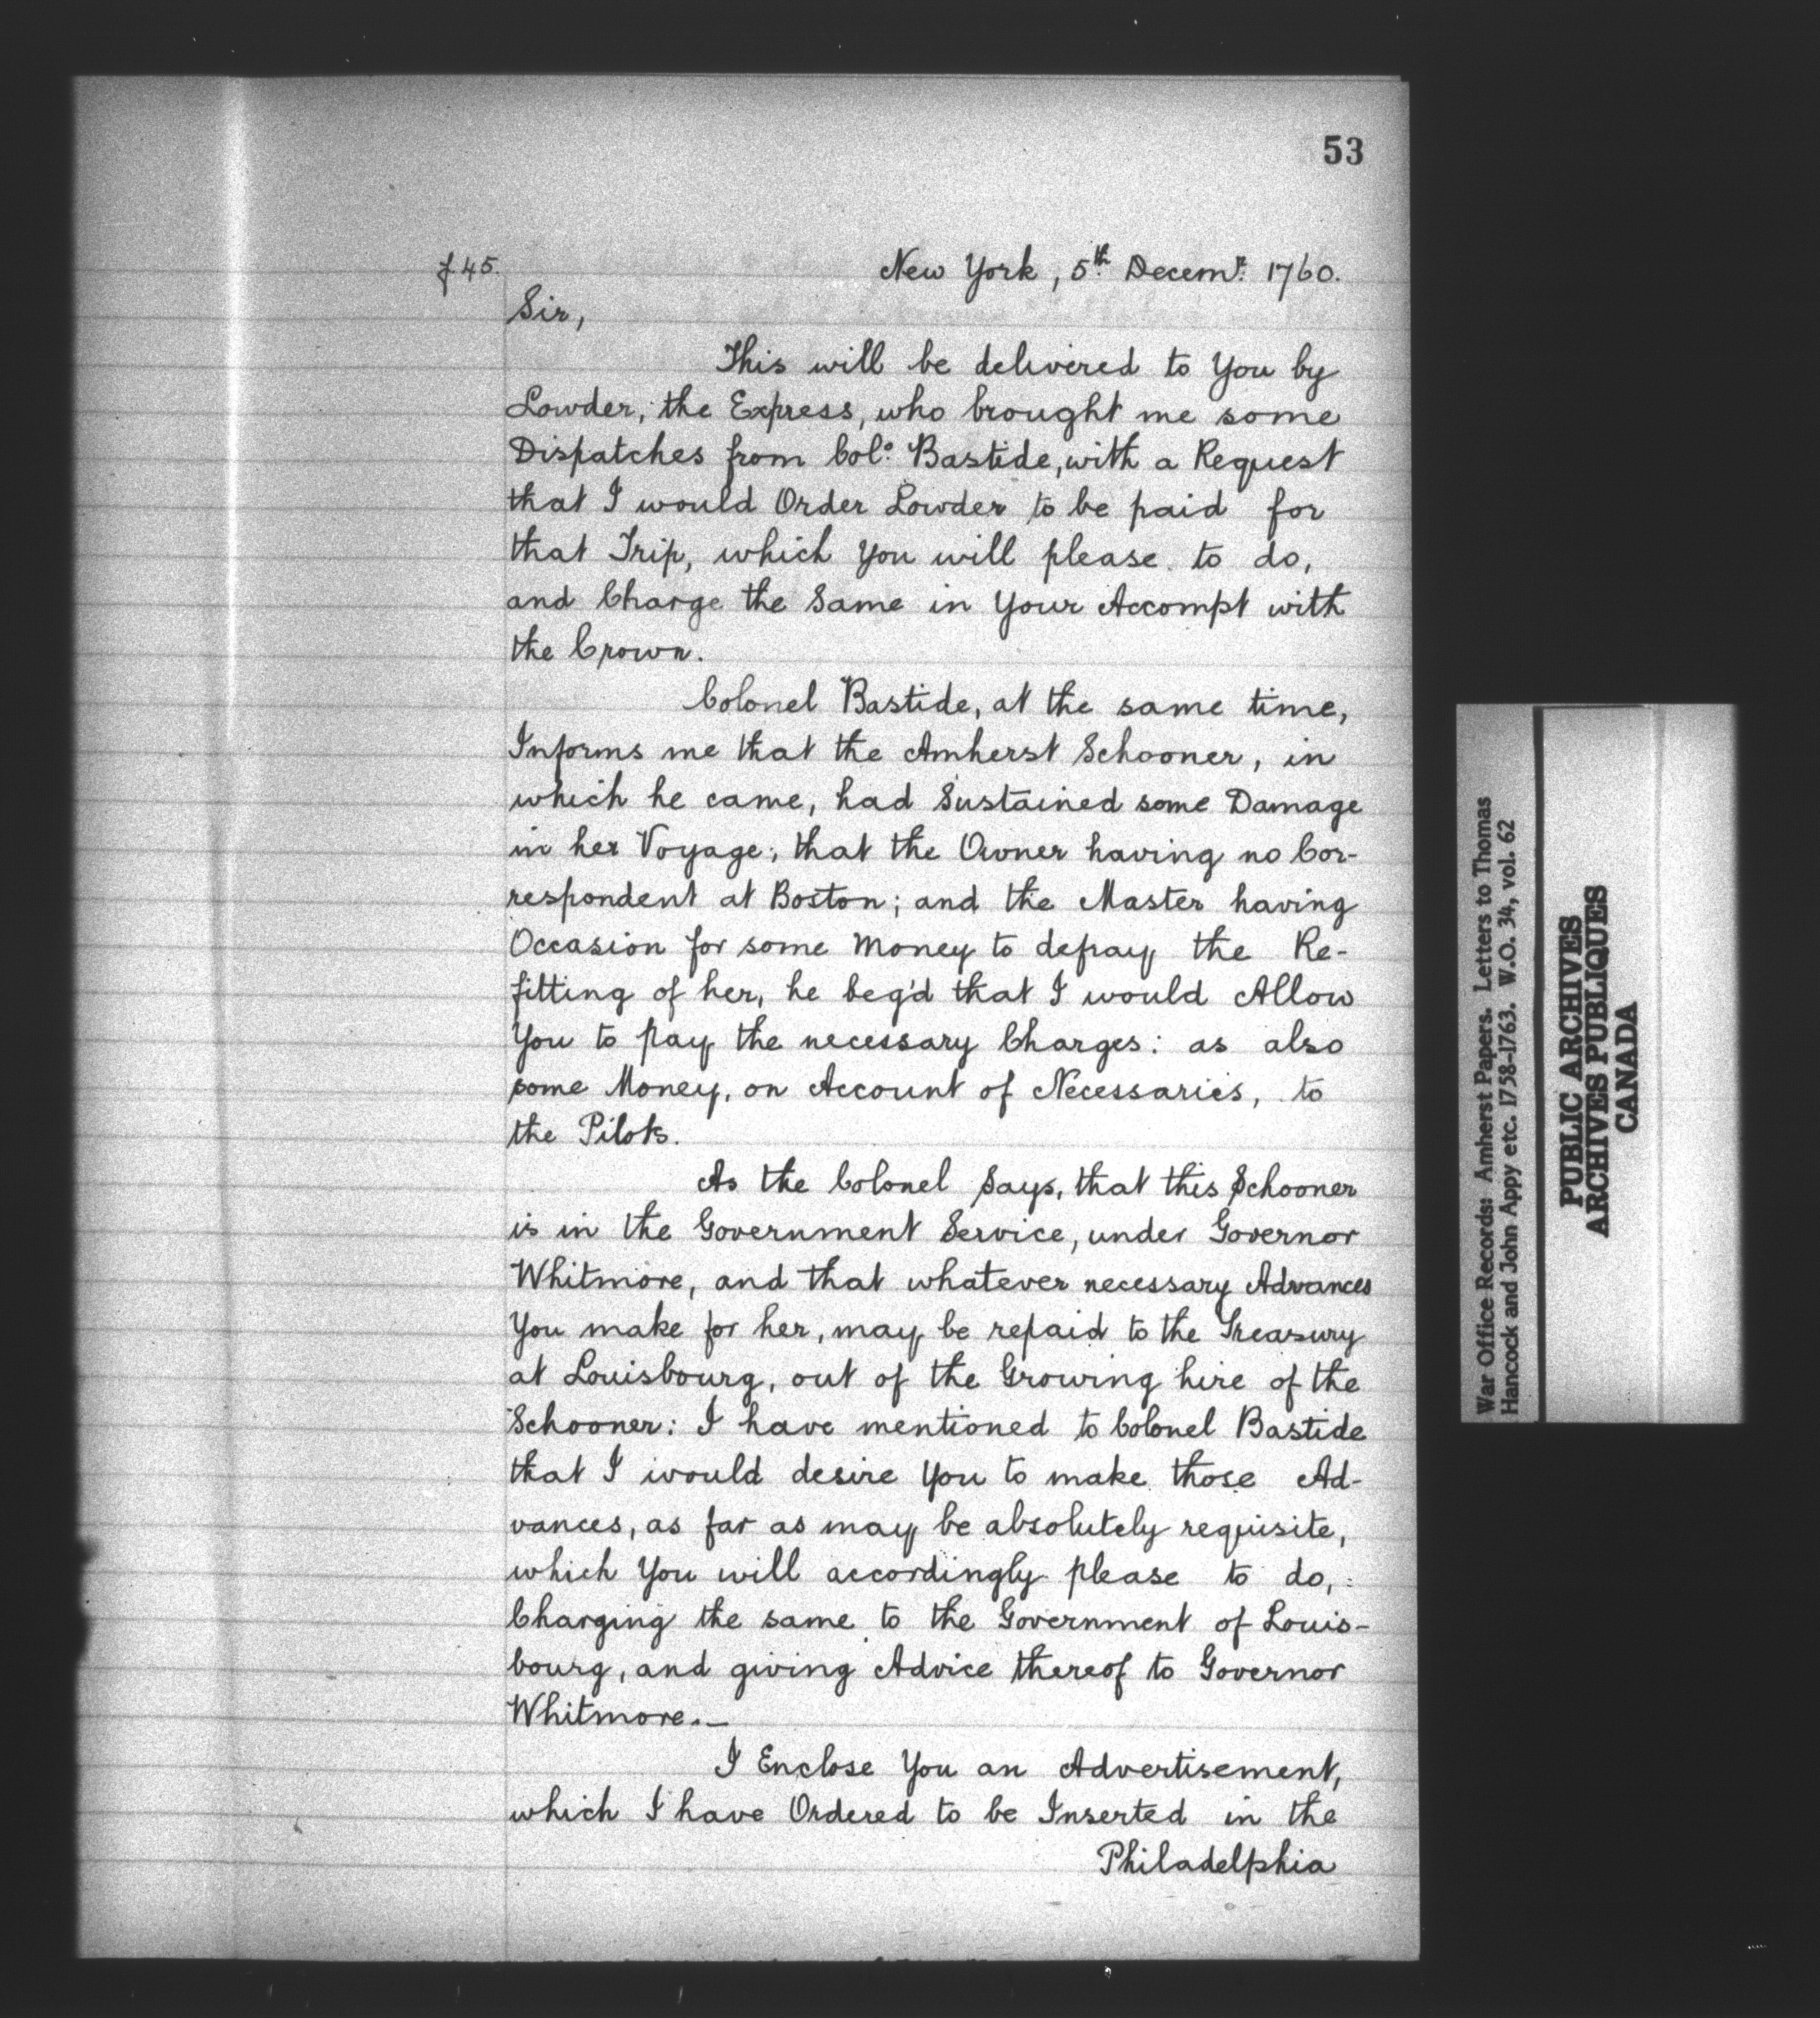 53
f. 45.
New York, 5th. Decemr. 1760.
Sir,
This will be delivered to You by
Lowder, the Express, who brought me some
Dispatches from Colo. Bastide, with a Request
that I would Order Lowder to be paid for
that Trip, which You will please to do,
and Charge the Same in Your Accompt with
the Crown.
Colonel Bastide, at the same time,
Informs me that the Amherst Schooner, in
which he came, had Sustained some Damage
in her Voyage; that the Owner having no Cor-
respondent at Boston; and the Master having
Occasion for some Money to defray the Re-
fitting of her, he beg'd that I would Allow
You to pay the necessary Charges: as also
some Money, on Account of Necessaries, to
the Pilots.
As the Colonel Says, that this Schooner
is in the Government Service, under Governor
Whitmore, and that whatever necessary Advances
You make for her, may be repaid to the Treasury
at Louisbourg, out of the Growing hire of the
Schooner: I have mentioned to Colonel Bastide
that I would desire You to make those Ad-
vances, as far as may be absolutely requisite,
which You will accordingly please to do,
Charging the same to the Government of Louis-
bourg, and giving Advice thereof to Governor
Whitmore.—
I Enclose You an Advertisement,
which I have Ordered to be Inserted in the
Philadelphia
War Office Records: Amherst Papers. Letters to Thomas
Hancock and John Appy etc. 1758-1763. W.O. 34, vol. 62
PUBLIC ARCHIVES
ARCHIVES PUBLIQUES
CANADA